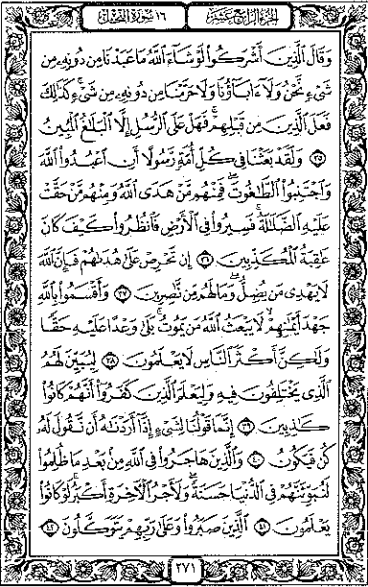 الجزء الرابع عشر
١٦ سورة النحل
وَقَالَ ٱلَّذِينَ أَشْرَكُوا۟ لَوْ شَآءَ ٱللَّهُ مَا عَبَدْنَا مِن دُونِهِۦ مِن
شَىْءٍ نَّحْنُ وَلَآ ءَابَآؤُنَا وَلَا حَرَّمْنَا مِن دُونِهِۦ مِن شَىْءٍ ۚ كَذَٰلِكَ
فَعَلَ ٱلَّذِينَ مِن قَبْلِهِمْ ۚ فَهَلْ عَلَى ٱلرُّسُلِ إِلَّا ٱلْبَلَٰغُ ٱلْمُبِينُ
٣٥ وَلَقَدْ بَعَثْنَا فِى كُلِّ أُمَّةٍ رَّسُولًا أَنِ ٱعْبُدُوا۟ ٱللَّهَ
وَٱجْتَنِبُوا۟ ٱلطَّٰغُوتَ ۖ فَمِنْهُم مَّنْ هَدَى ٱللَّهُ وَمِنْهُم مَّنْ حَقَّتْ
عَلَيْهِ ٱلضَّلَٰلَةُ ۚ فَسِيرُوا۟ فِى ٱلْأَرْضِ فَٱنظُرُوا۟ كَيْفَ كَانَ
عَٰقِبَةُ ٱلْمُكَذِّبِينَ ٣٦ إِن تَحْرِصْ عَلَىٰ هُدَىٰهُمْ فَإِنَّ ٱللَّهَ
لَا يَهْدِى مَن يُضِلُّ ۖ وَمَا لَهُم مِّن نَّٰصِرِينَ ٣٧ وَأَقْسَمُوا۟ بِٱللَّهِ
جَهْدَ أَيْمَٰنِهِمْ ۙ لَا يَبْعَثُ ٱللَّهُ مَن يَمُوتُ ۚ بَلَىٰ وَعْدًا عَلَيْهِ حَقًّا
وَلَٰكِنَّ أَكْثَرَ ٱلنَّاسِ لَا يَعْلَمُونَ ٣٨ لِيُبَيِّنَ لَهُمُ
ٱلَّذِى يَخْتَلِفُونَ فِيهِ وَلِيَعْلَمَ ٱلَّذِينَ كَفَرُوٓا۟ أَنَّهُمْ كَانُوا۟
كَٰذِبِينَ ٣٩ إِنَّمَا قَوْلُنَا لِشَىْءٍ إِذَآ أَرَدْنَٰهُ أَن نَّقُولَ لَهُۥ
كُن فَيَكُونُ ٤٠ وَٱلَّذِينَ هَاجَرُوا۟ فِى ٱللَّهِ مِنۢ بَعْدِ مَا ظُلِمُوا۟
لَنُبَوِّئَنَّهُمْ فِى ٱلدُّنْيَا حَسَنَةً ۖ وَلَأَجْرُ ٱلْءَاخِرَةِ أَكْبَرُ ۚ لَوْ كَانُوا۟
يَعْلَمُونَ ٤١ ٱلَّذِينَ صَبَرُوا۟ وَعَلَىٰ رَبِّهِمْ يَتَوَكَّلُونَ ٤٢
٢٧١